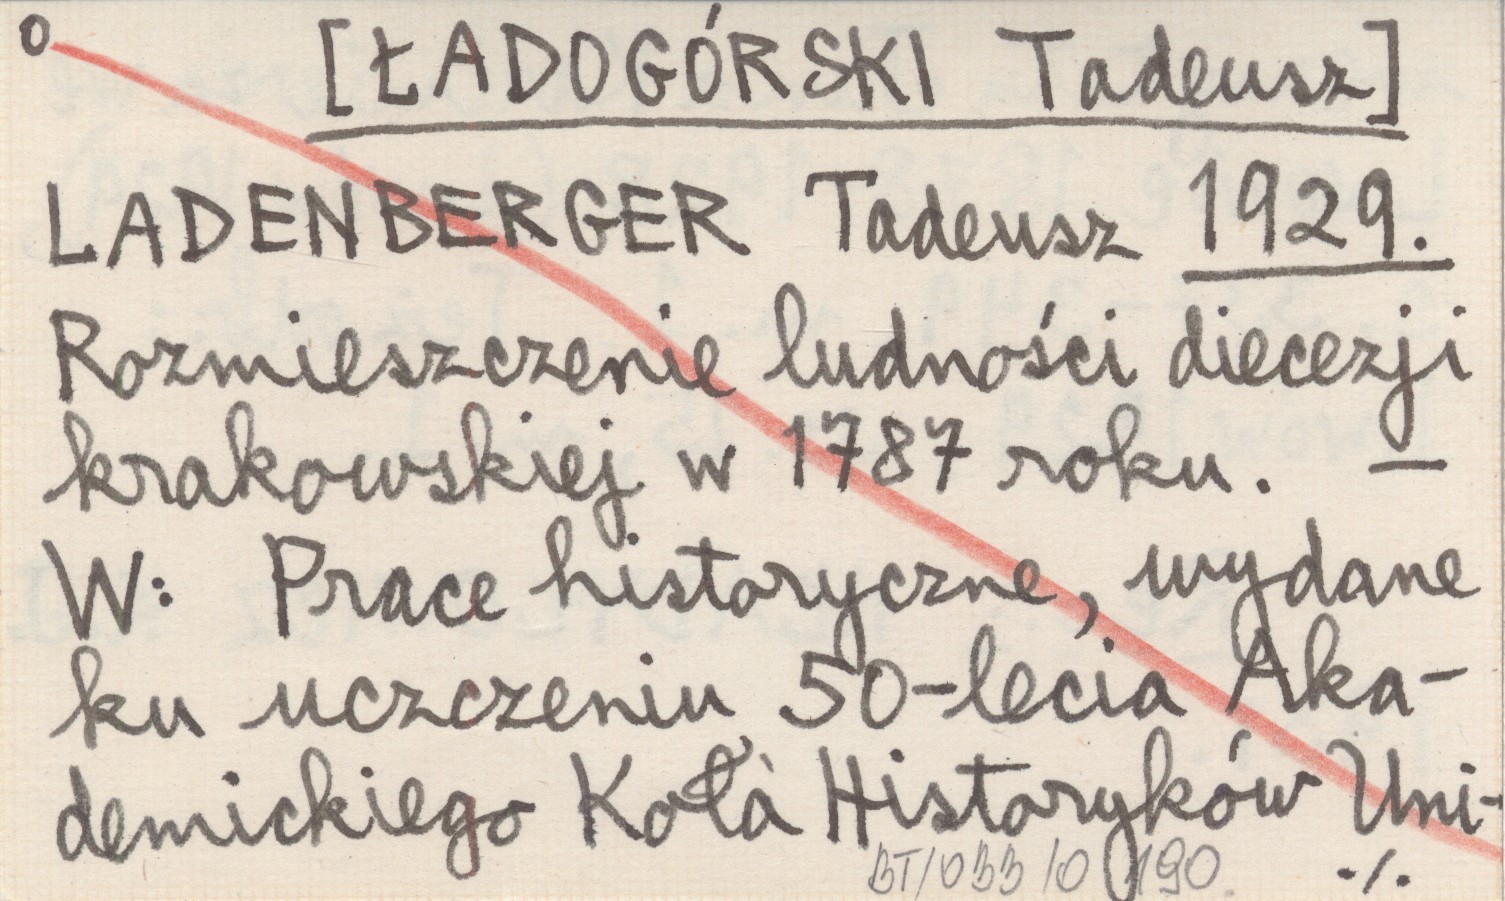 o
[ŁADOGÓRSKI Tadeusz]
LADENBERGER Tadeusz 1929.
Rozmieszczenie ludności diecezji
krakowskiej w 1787 roku. —
W: Prace historyczne, wydane
ku uczczeniu 50-lecia Aka-
demickiego Koła Historyków Uni-
BT/OBB/O/190. ./.